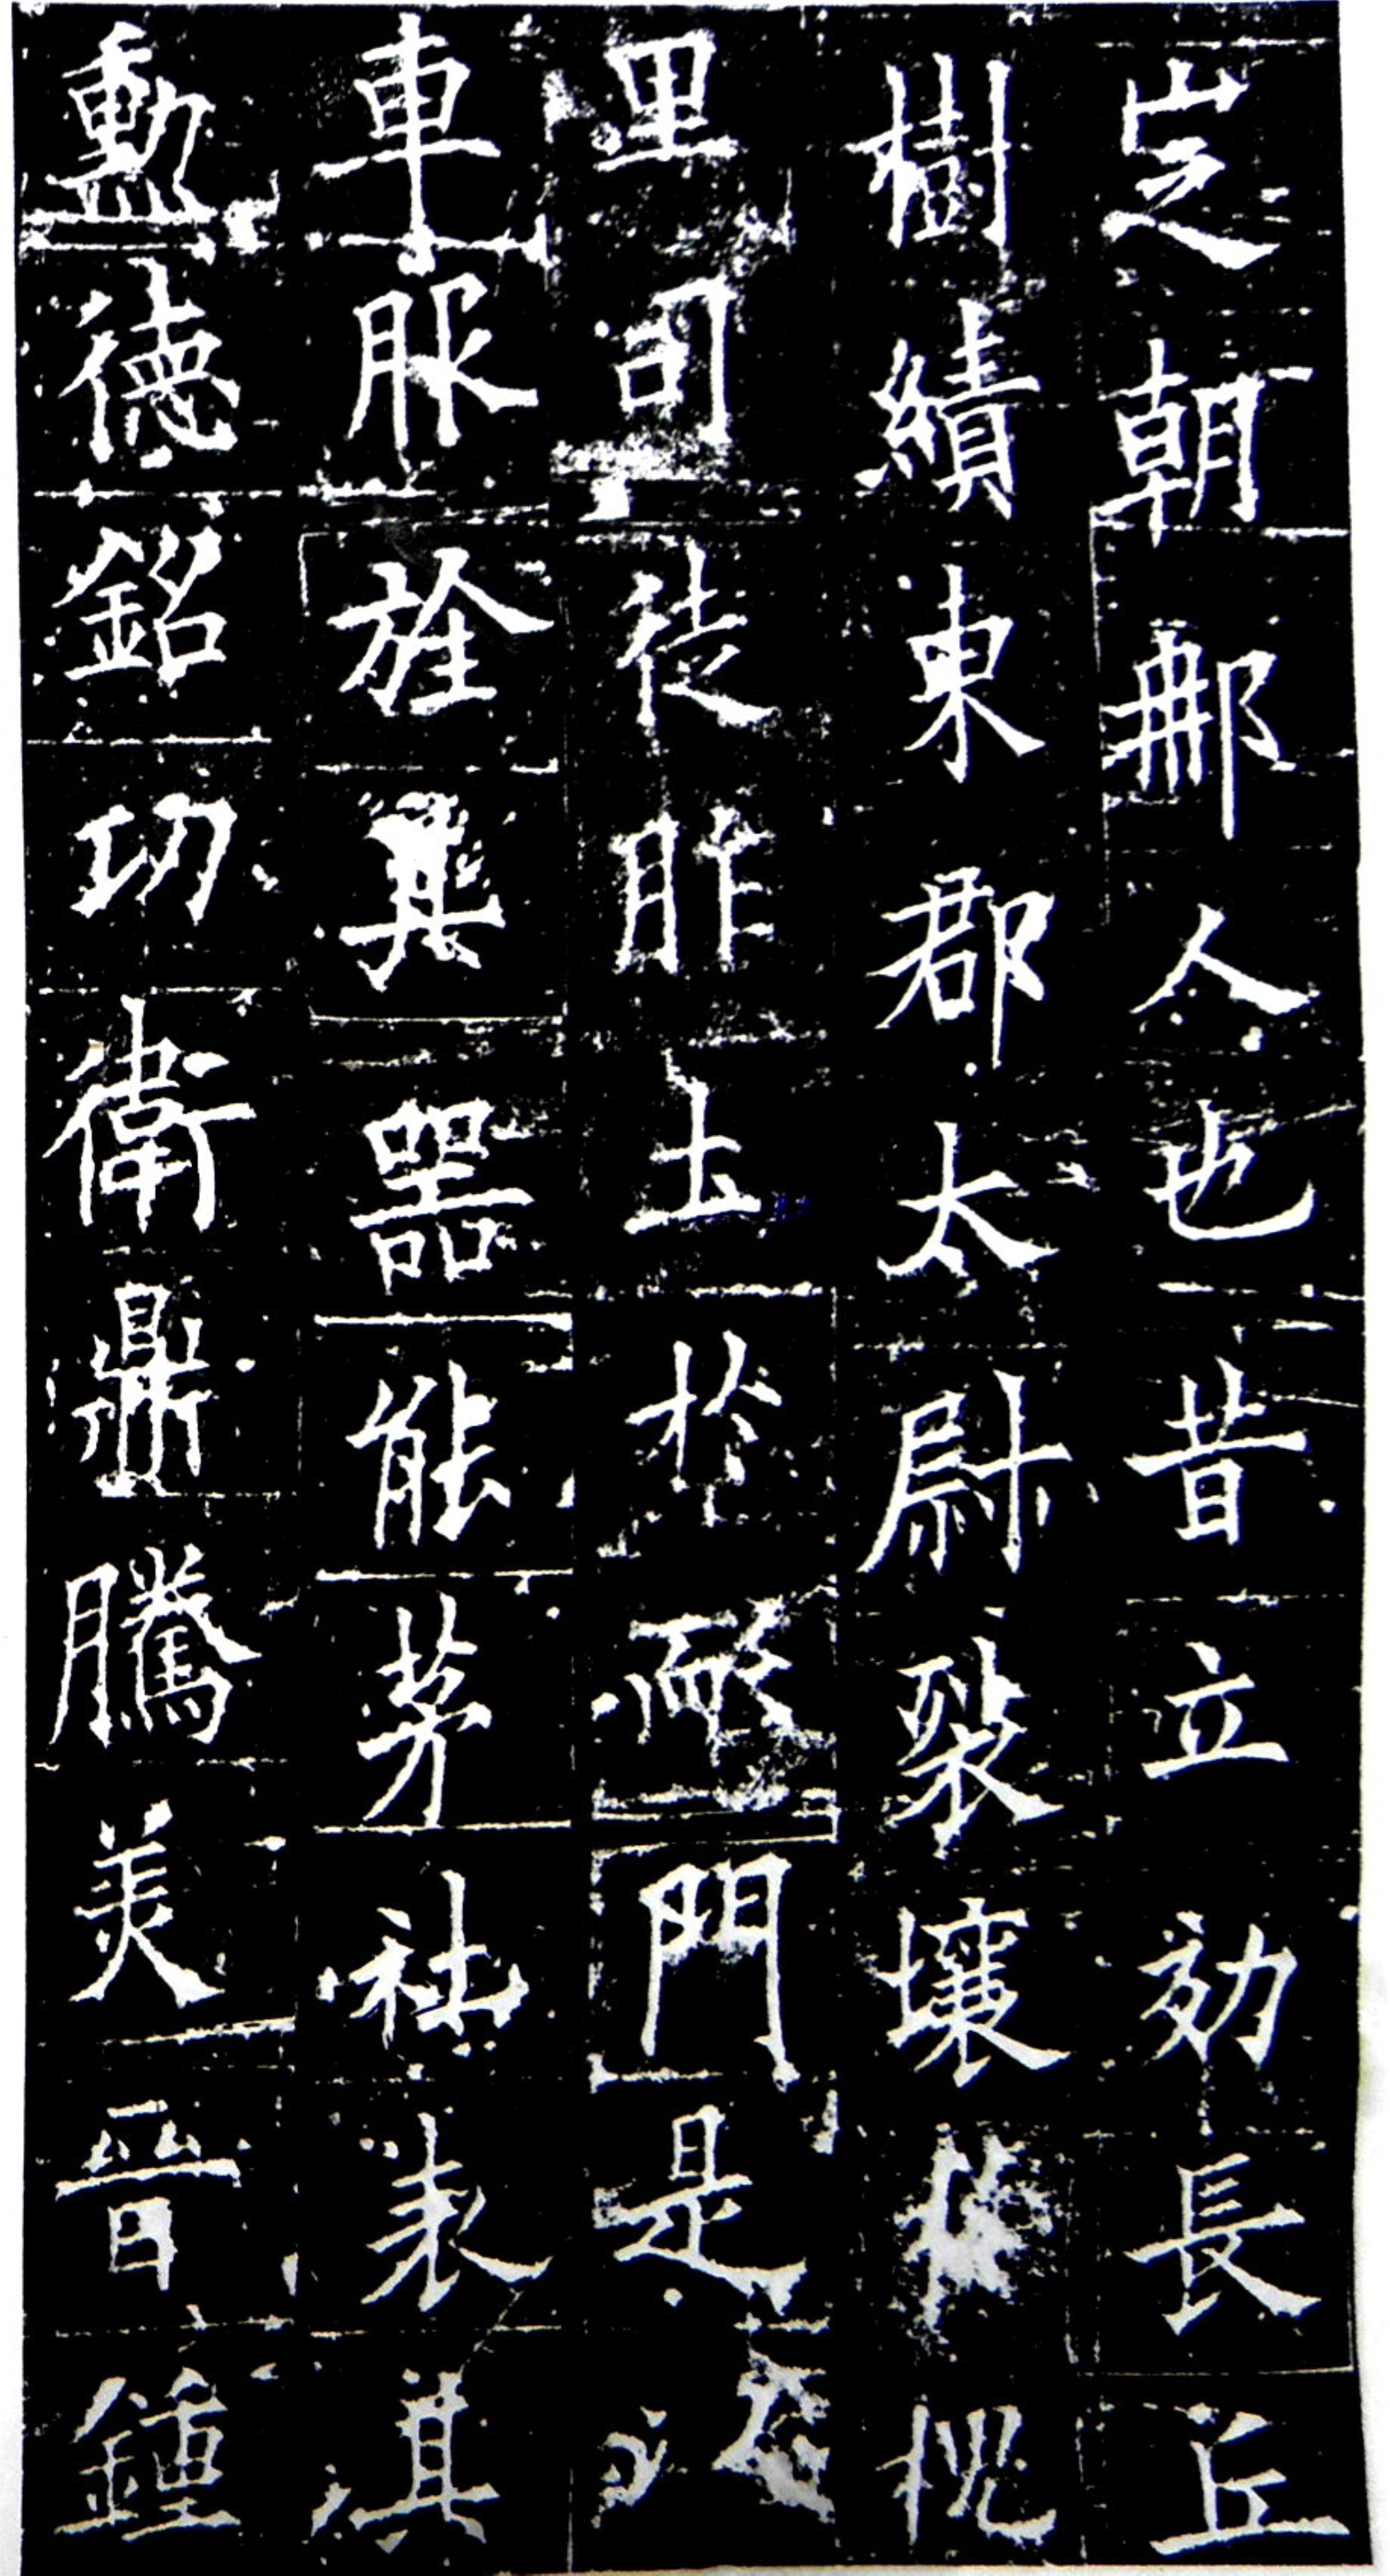 㝎朝那人也昔立効長丘
樹績東郡太尉裂壤於槐
里司徒胙土於耏門是以
車服旌其器能茅社表其
勳德銘功衛鼎騰美晉鍾